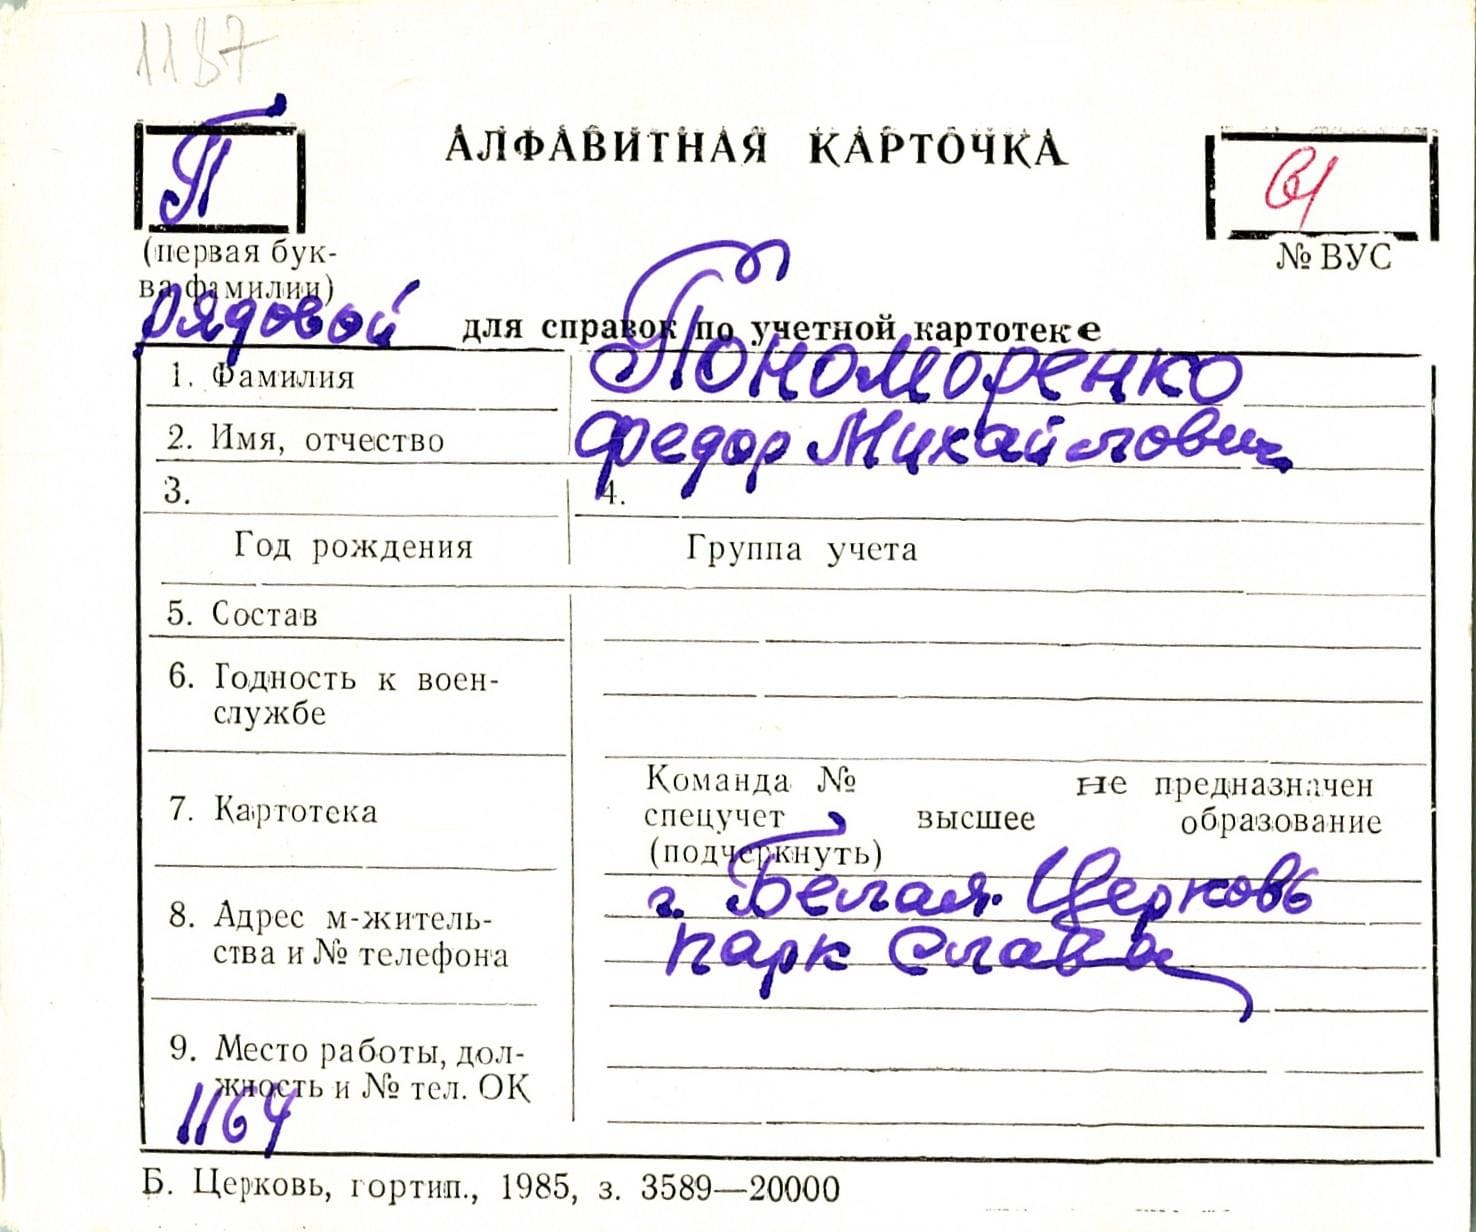 1187
П
АЛФАВИТНАЯ КАРТОЧКА
(первая бук-
ва фамилии)
№ ВУС
рядовой
для справок по учетной картотеке
1. Фамилия Пономоренко
2. Имя, отчество Федор Михайлович
3. 4.
Год рождения Группа учета
5. Состав
6. Годность к воен-
службе
7. Картотека
Команда № не предназначен
спецучет высшее образование
(подчеркнуть)
8. Адрес м-житель-
ства и № телефона
г. Белая Церковь
парк Слава
9. Место работы, дол-
жность и № тел. ОК
1164
Б. Церковь, гортип., 1985, з. 3589—20000